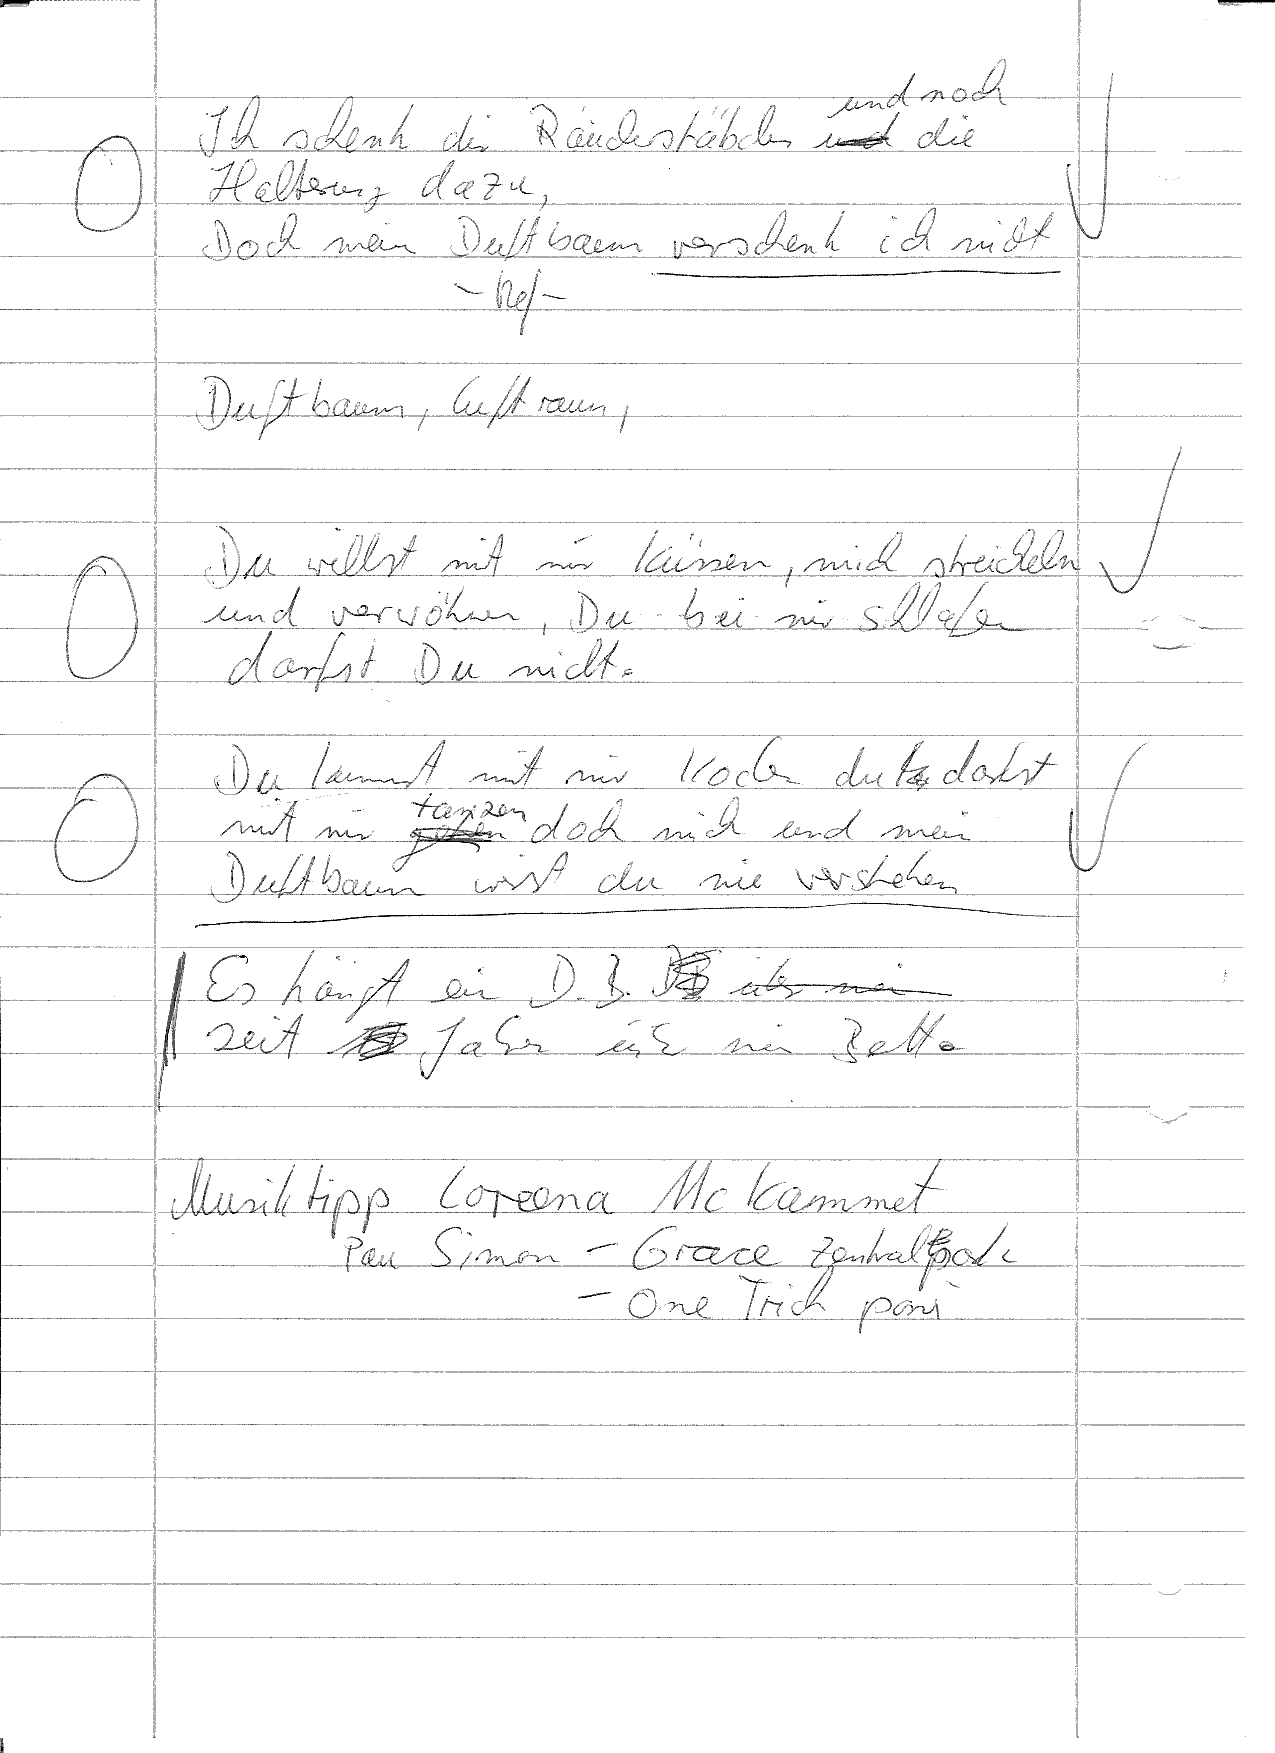 Ich schenk dir Räucherstäbchen und noch die
Halterung dazu,
Doch mein Duftbaum verschenk ich nicht
- Ref -
Duftbaum, Luftraum,
Du willst mit mir küssen, mich streicheln
und verwöhnen, Du bei mir schlafen
darfst Du nicht.
Du kannst mit mir Kochen du darfst
mit mir tanzen doch mich und mein
Duftbaum wirst du nie verstehen
Es hängt ein D. B. über mein
seit Jahren über mein Bett.
Musiktipp Loreena Mc Kammet
Pau Simon - Grace Zentralpark
- One Trich poni